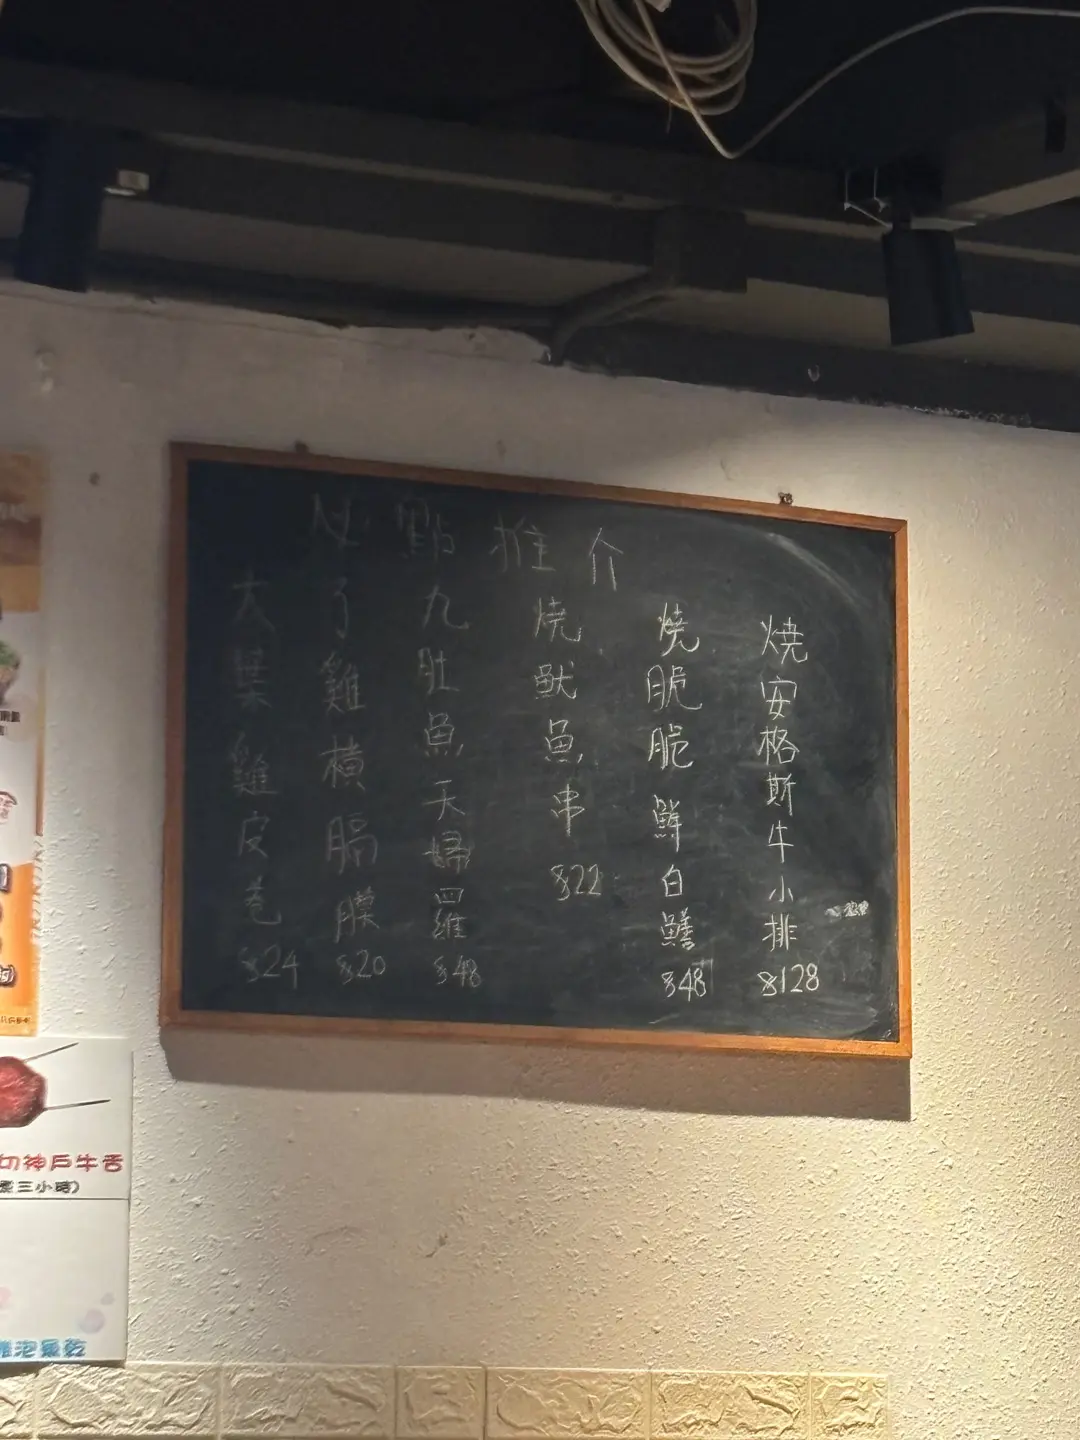 必點推介
燒安格斯牛小排
$128
燒脆脆鮮白鱔
$48
燒魷魚串
$22
九肚魚天婦羅
$48
了雞橫膈膜
$20
大葉雞皮卷
$24
切神戶牛舌
三小時)
泡魚乾